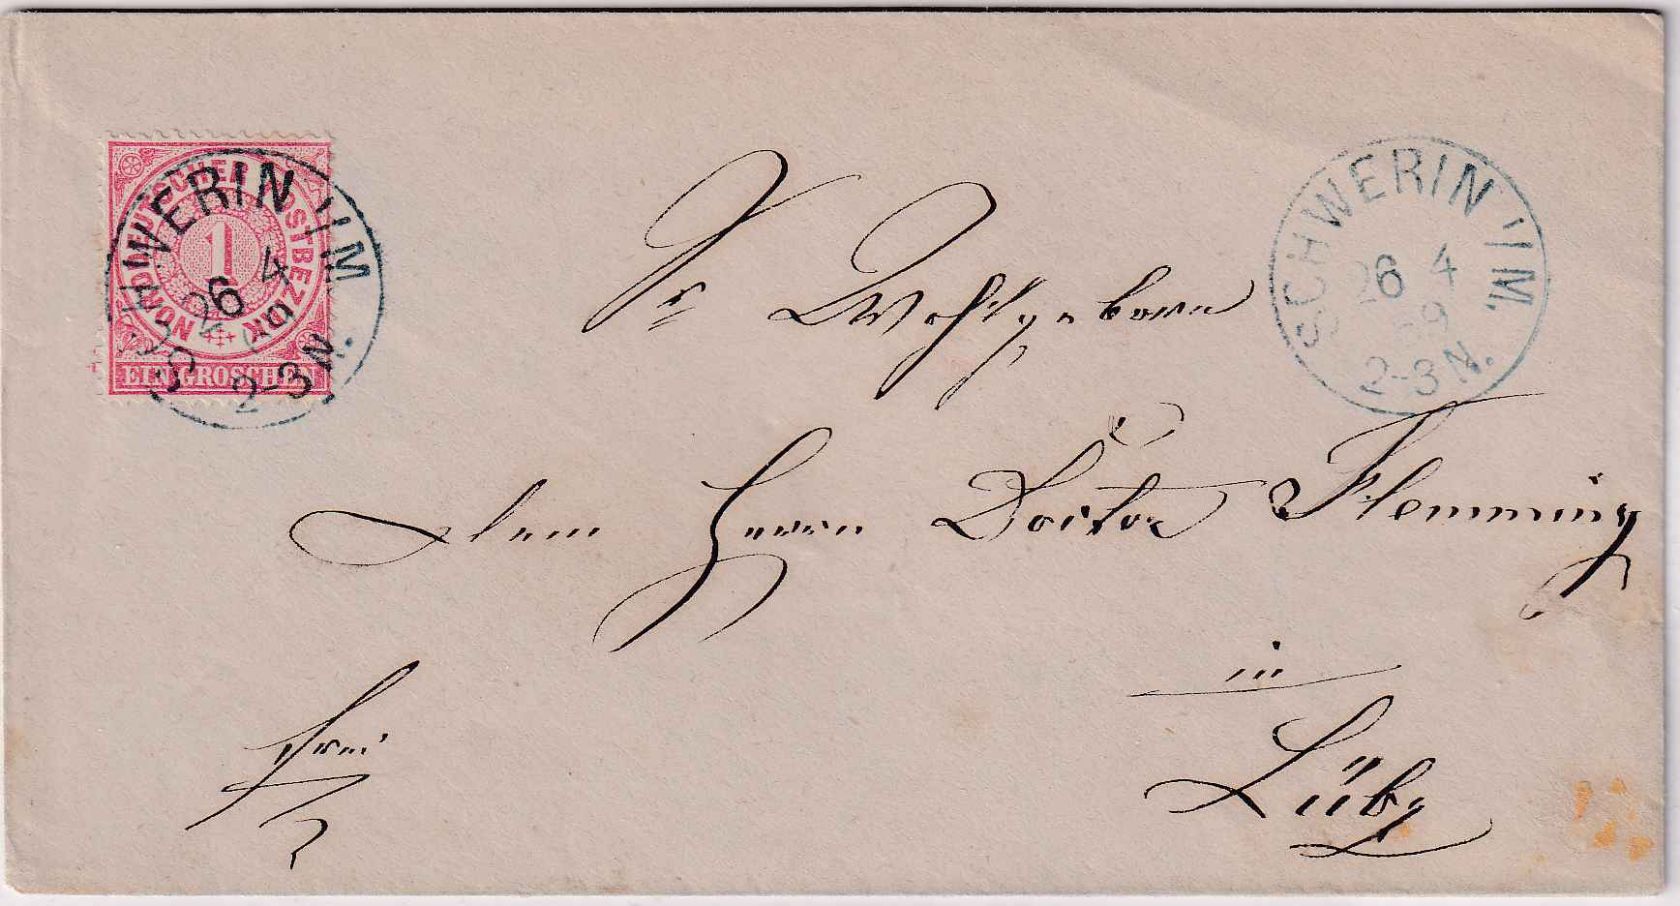 NORDDEUTSCHER POSTBEZIRK
1
EIN GROSCHEN
SCHWERIN I/M.
26 4
2-3 N.
SCHWERIN I/M.
26 4
69
2-3 N.
Sr Wohlgeboren
dem Herrn Doctor Flemming
in
Lübz
frei